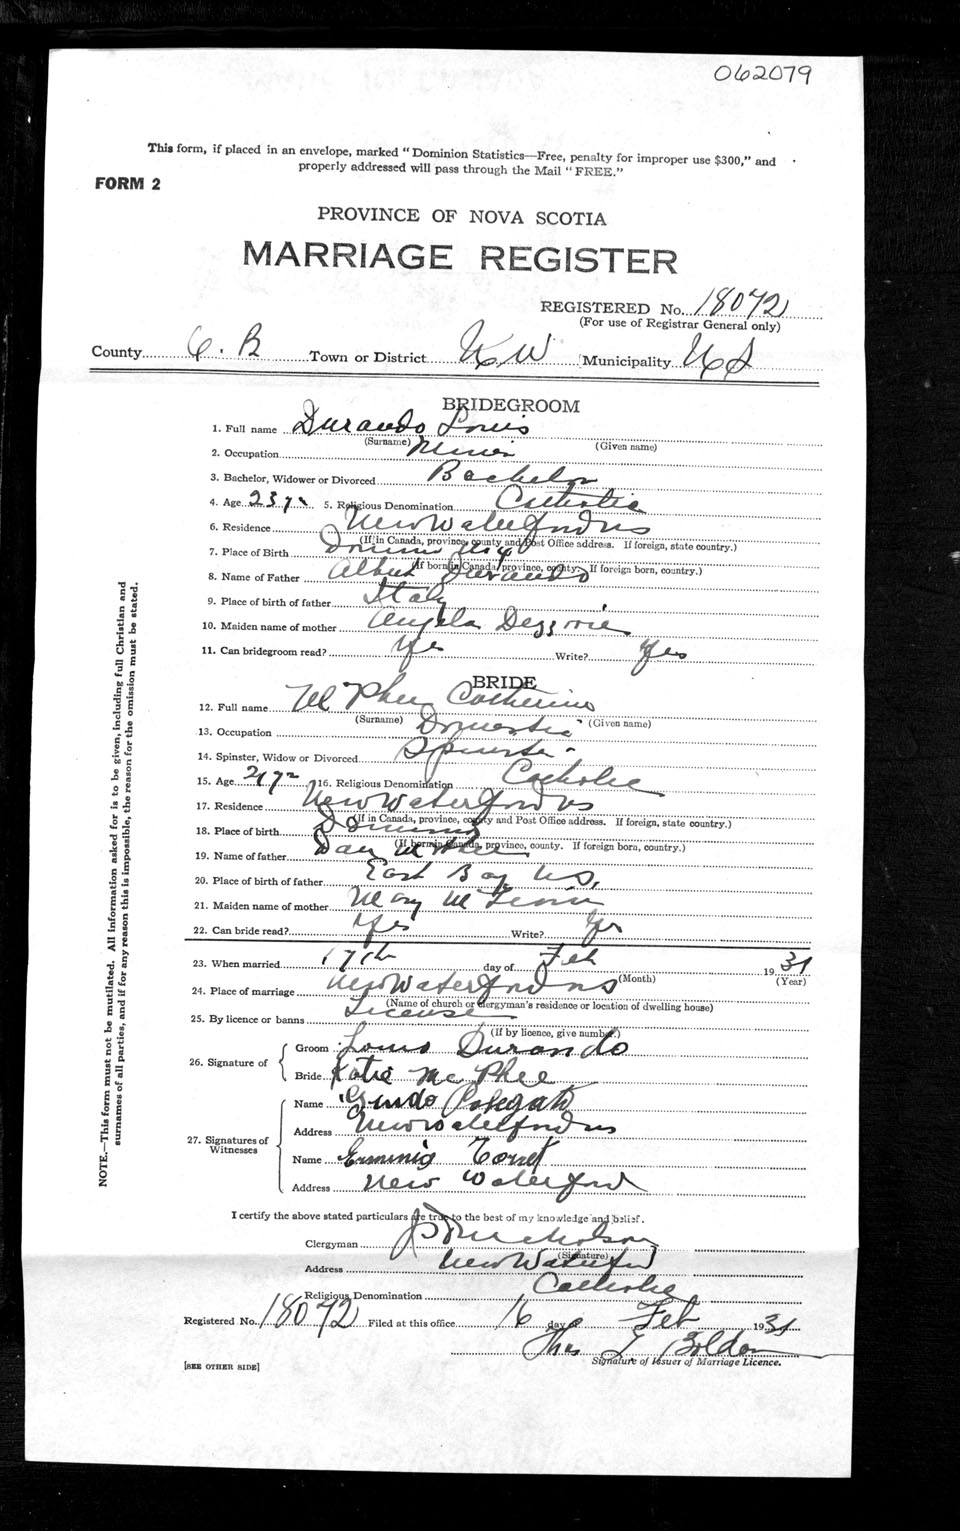 062079
This form, if placed in an envelope, marked "Dominion Statistics—Free, penalty for improper use $300," and
properly addressed will pass through the Mail "FREE."
FORM 2
PROVINCE OF NOVA SCOTIA
MARRIAGE REGISTER
REGISTERED No. 18072
(For use of Registrar General only)
County C. B Town or District N W Municipality N S
BRIDEGROOM
1. Full name Durando Louis
(Surname) (Given name)
2. Occupation Miner
3. Bachelor, Widower or Divorced Bachelor
4. Age 23 yrs 5. Religious Denomination Catholic
6. Residence New Waterford NS
(If in Canada, province, county and Post Office address. If foreign, state country.)
7. Place of Birth Dominion
(If born in Canada, province, county. If foreign born, country.)
8. Name of Father Albert Durando
9. Place of birth of father Italy
10. Maiden name of mother Angela
11. Can bridegroom read? Yes Write? Yes
BRIDE
12. Full name McPhee Catherine
(Surname) (Given name)
13. Occupation Domestic
14. Spinster, Widow or Divorced Spinster
15. Age 21 yrs 16. Religious Denomination Catholic
17. Residence New Waterford NS
(If in Canada, province, county and Post Office address. If foreign, state country.)
18. Place of birth Dominion
(If born in Canada, province, county. If foreign born, country.)
19. Name of father Dan McPhee
20. Place of birth of father East Bay N.S.
21. Maiden name of mother Mary
22. Can bride read? Yes Write? Yes
23. When married 17th day of Feb 1931
(Month) (Year)
24. Place of marriage New Waterford NS
(Name of church or clergyman's residence or location of dwelling house)
25. By licence or banns License
(If by licence, give number.)
26. Signature of
Groom Louis Durando
Bride Katie McPhee
27. Signatures of Witnesses
Name Guido
Address New Waterford NS
Name
Address New Waterford
I certify the above stated particulars are true to the best of my knowledge and belief.
Clergyman Nicholson
(Signature)
Address New Waterford
Religious Denomination Catholic
Registered No. 18072 Filed at this office 16 day of Feb 1931
Thos
Signature of Issuer of Marriage Licence.
[SEE OTHER SIDE]
NOTE.—This form must not be mutilated. All information asked for is to be given, including full Christian and
surnames of all parties, and if for any reason this is impossible, the reason for the omission must be stated.